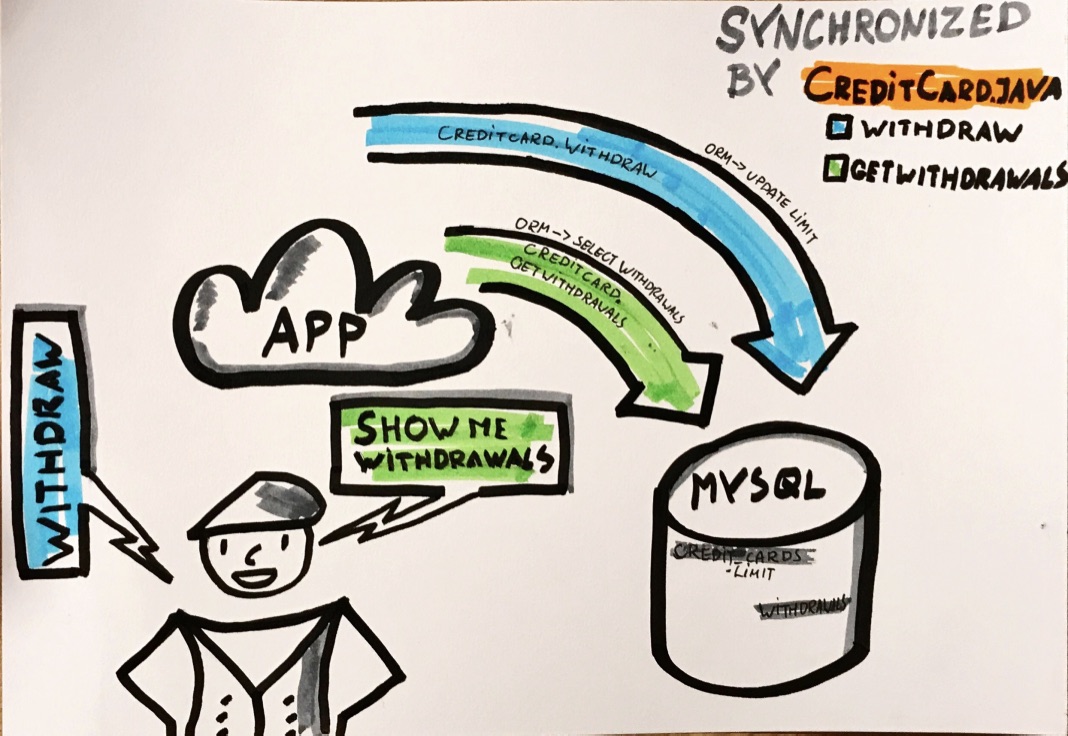 SYNCHRONIZED
BY CREDITCARD.JAVA
WITHDRAW
GETWITHDRAWALS
CREDITCARD.WITHDRAW
ORM-> UPDATE LIMIT
ORM-> SELECT WITHDRAWALS
CREDITCARD.
GETWITHDRAWALS
APP
WITHDRAW
SHOW ME
WITHDRAWALS
MYSQL
CREDIT_CARDS
-LIMIT
WITHDRAWALS